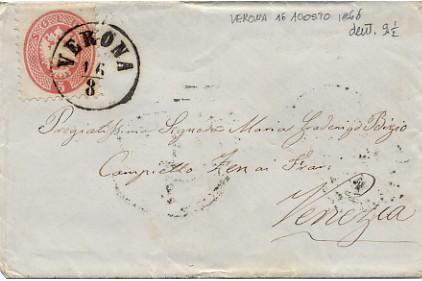 VERONA 16 AGOSTO 1866
dent. 9½
VERONA
16/8
5
Pregiatissima Signora Maria Foscarinigo Brizio
Campietto Zen ai Frari
Venezia